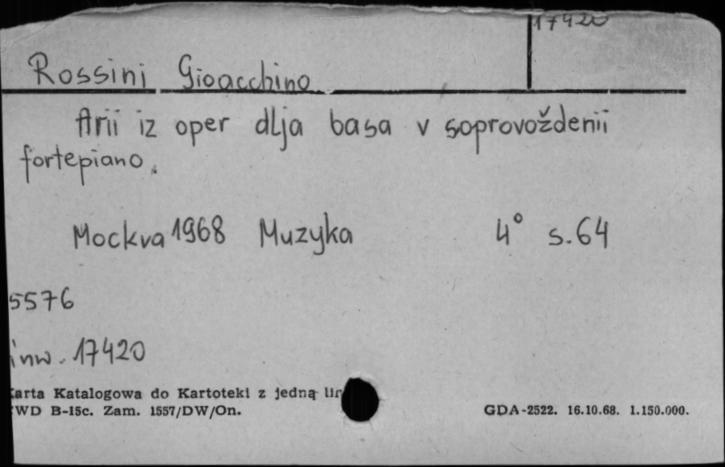 17420
Rossini Gioacchino
Arii iz oper dlja basa v soprovoždenii
fortepiano.
Mockva 1968 Muzyka 4° s.64
5576
inw. 17420
Karta Katalogowa do Kartoteki z jedną
WD B-15c. Zam. 1557/DW/On.
GDA-2522. 16.10.68. 1.150.000.